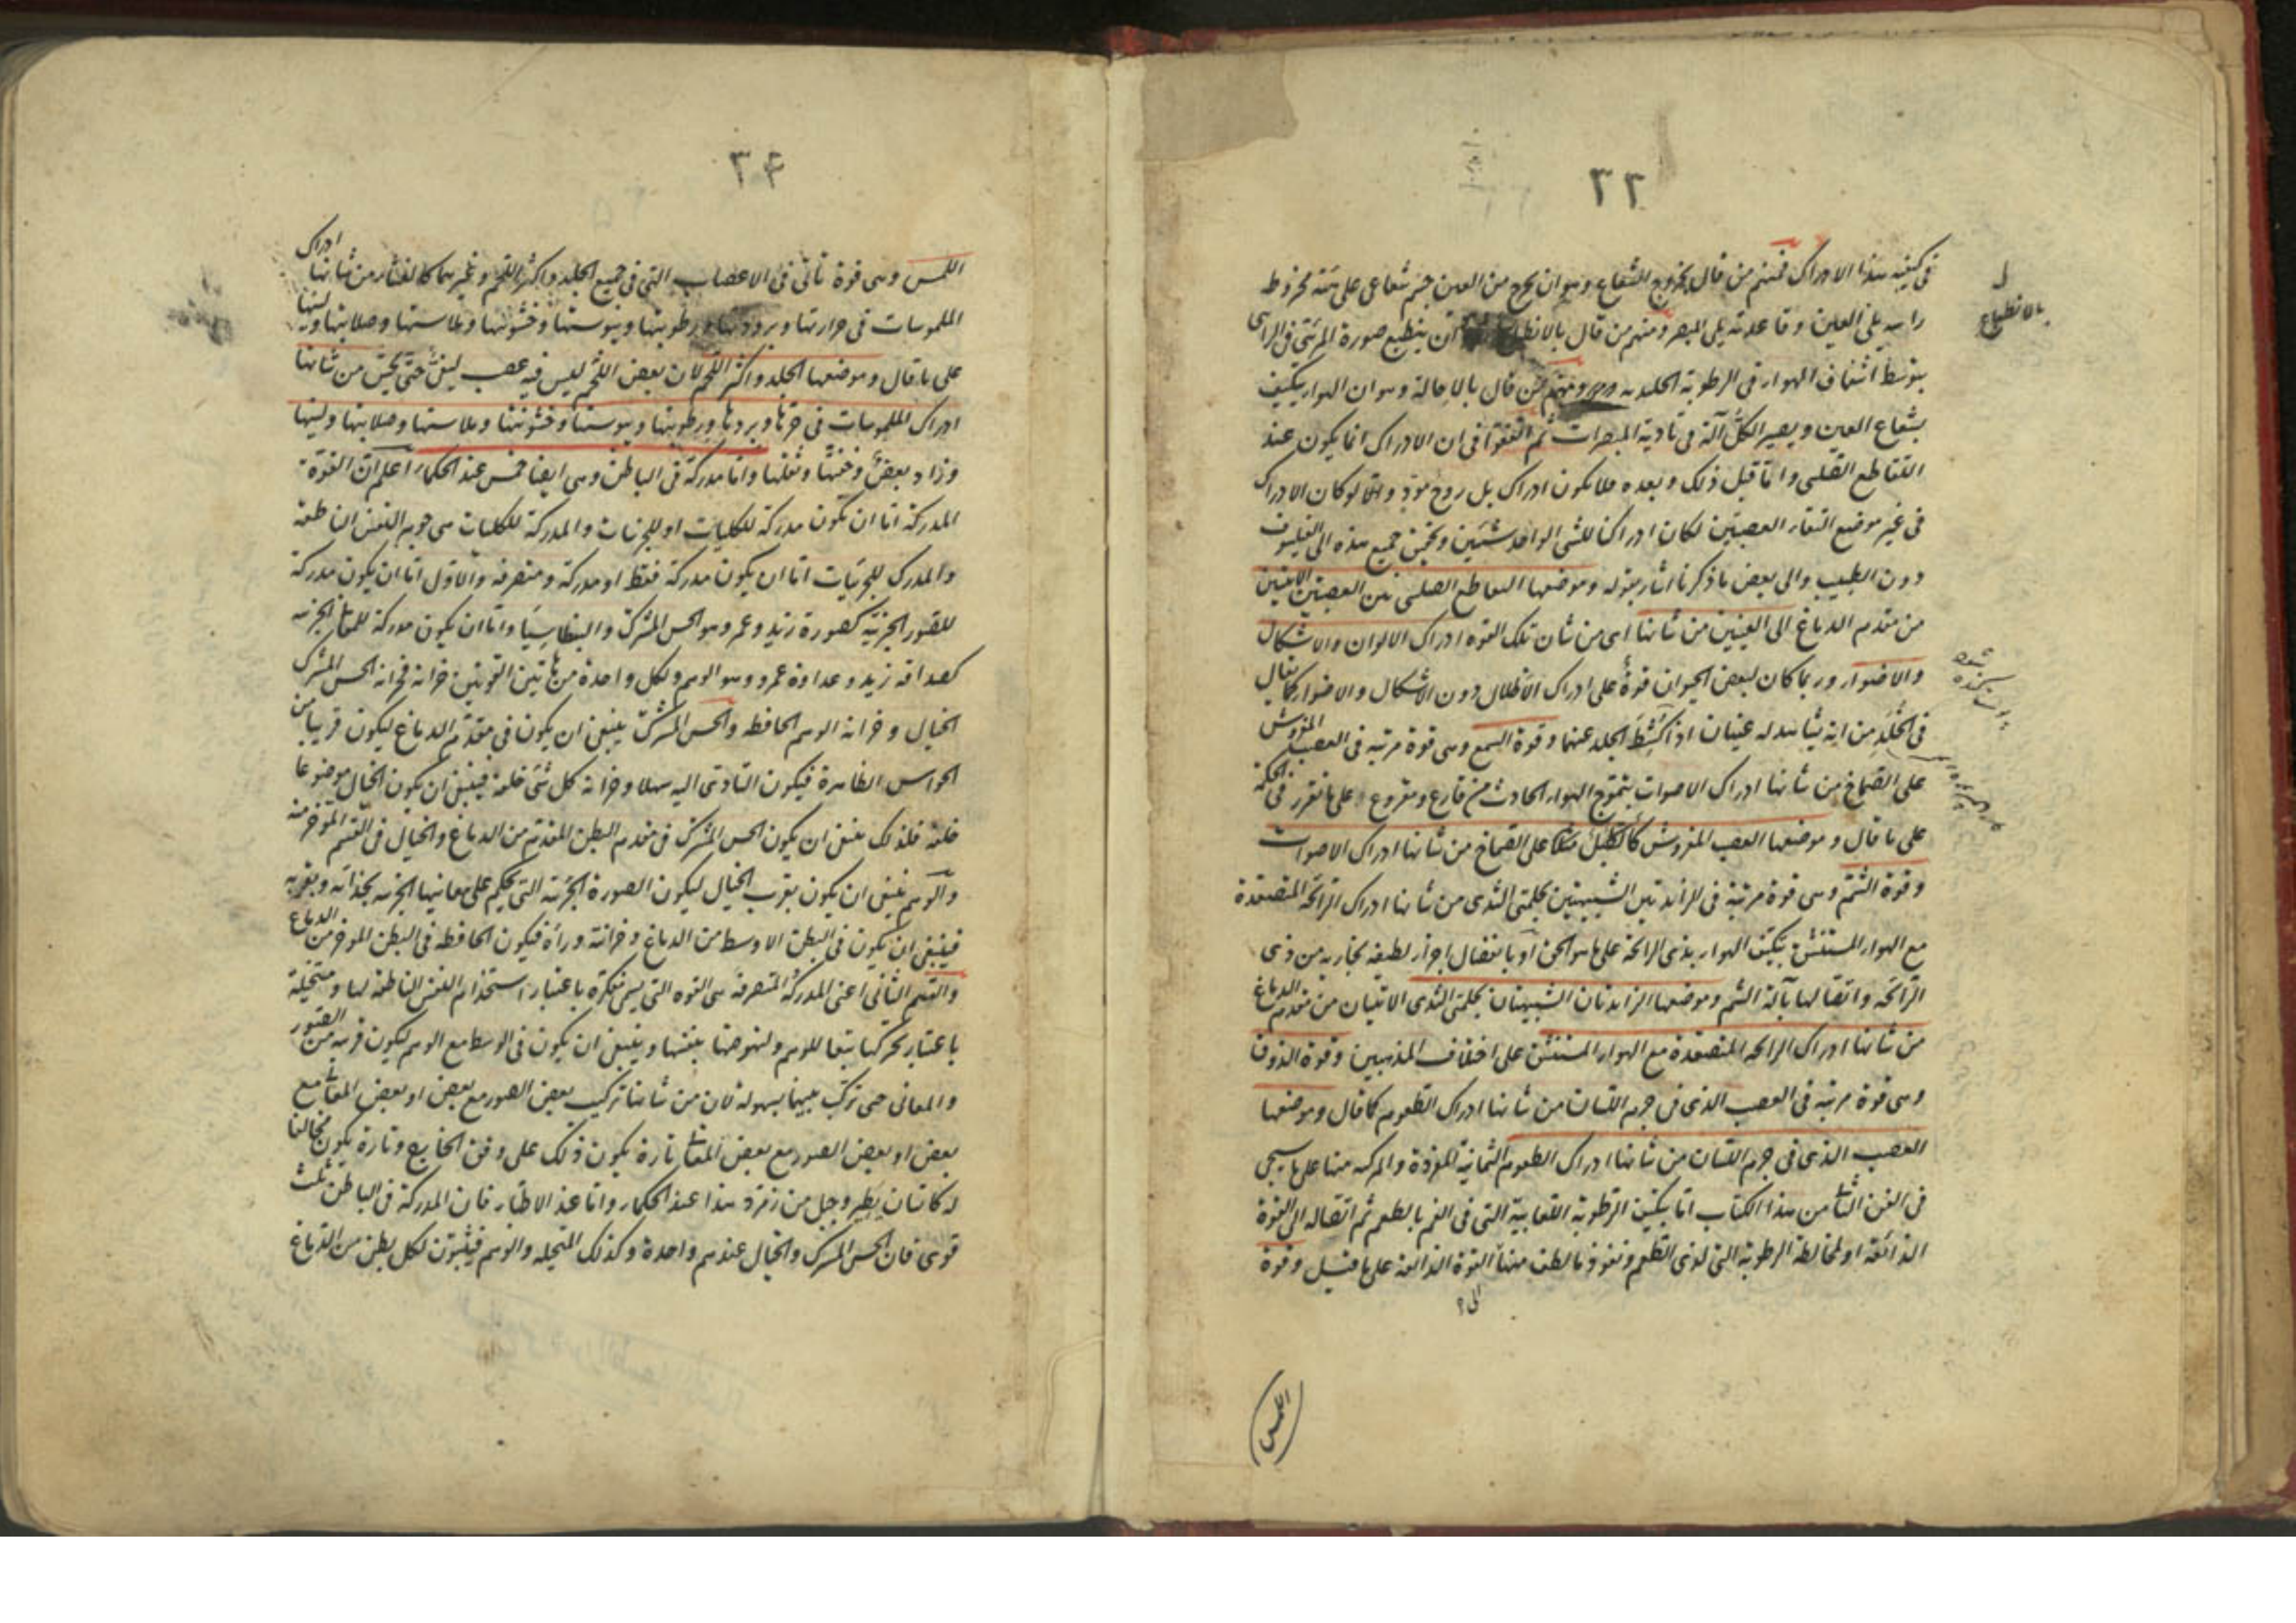 ٣٣
في كيفية هذا الادراك فمنهم من قال بخروج الشعاع وهو ان يخرج من العين جسم شعاعي على هيئة مخروط
راسه يلي العين وقاعدته يلي المبصر ومنهم من قال بالانطباع ان ينطبع صورة المرئي في الرائي
بالانطباع
بتوسط اشفاف الهواء في الرطوبة الجلدية ومنهم من قال بالاحالة وهو ان الهواء يتكيف
بشعاع العين ويصير الكل آلة في تادية المبصرات ثم اتفقوا في ان الادراك انما يكون عند
التقاطع الصليبي واما قبل ذلك وبعده فلا يكون ادراك بل روح مؤد والا لو كان الادراك
في غير موضع التقاء العصبتين لكان ادراكنا للشي الواحد شيئين وتحقيق جميع هذه الى الفيلسوف
دون الطبيب والى بعض ما ذكرنا اشار بقوله وموضعها التقاطع الصليبي بين العصبتين الآتيتين
من مقدم الدماغ الى العينين من شانها اي من شان تلك القوة ادراك الالوان والاشكال
والاضواء وربما كان لبعض الحيوان قوة على ادراك الاظلال دون الاشكال والاضواء كما يقال
في الخلد من انه يشاهد له عينان اذا كشط الجلد عنهما وقوة السمع وهي قوة مرتبة في العصب المفروش
على الصماخ من شانها ادراك الاصوات بتموج الهواء الحادث من قارع ومقروع على ما تقرر في الحكمة
على ما قال وموضعها العصب المفروش كالطبل على الصماخ من شانها ادراك الاصوات
وقوة الشم وهي قوة مرتبة في الزائدتين الشبيهتين بحلمتي الثدي من شانها ادراك الرائحة المتصعدة
مع الهواء المستنشق بتكيف الهواء بذي الرائحة على ما هو الحق او بانفصال اجزاء لطيفة بخارية من ذي
الرائحة واتصالها بآلة الشم وموضعها الزائدتان الشبيهتان بحلمتي الثدي الآتيتان من مقدم الدماغ
من شانها ادراك الرائحة المتصعدة مع الهواء المستنشق على اختلاف المذهبين وقوة الذوق
وهي قوة مرتبة في العصب الذي في جرم اللسان من شانها ادراك الطعوم كما قال وموضعها
العصب الذي في جرم اللسان من شانها ادراك الطعوم الثمانية المفردة والمركبة منها على ما سيجي
في الفن الثا من هذا الكتاب اما بتكيف الرطوبة اللعابية التي في الفم بالطعم ثم اتصاله الى القوة
الذائقة او لمخالطة الرطوبة التي لذي الطعم ونفوذ ما لطف منها القوة الذائقة على ما قيل وقوة
الى؟
اللمس
٣۴
اللمس وهي قوة تاتي في الاعصاب التي في جميع الجلد واكثر اللحم وغيرهما كالغشاء من شانها ادراك
الملموسات في حرارتها وبرودتها ورطوبتها ويبوستها وخشونتها وملاستها وصلابتها ولينها
على ما قال وموضعها الجلد واكثر اللحم لان بعض اللحم ليس فيه عصب ليفي حتى يحس من شانها
ادراك الملموسات في حرها وبردها ورطوبتها ويبوستها وخشونتها وملاستها وصلابتها ولينها
وزاد بعض وخفتها وثقلها واما مدركة في الباطن وهي ايضا خمس عند الحكماء اعلم ان القوة
المدركة اما ان تكون مدركة للكليات او للجزئيات والمدركة للكليات هي جوهر النفس الناطقة
والمدرك للجزئيات اما ان يكون مدركة فقط او مدركة ومتصرفة والاول اما ان يكون مدركة
للصور الجزئية كصورة زيد وعمر وهو الحس المشترك والبنطاسيا واما ان يكون مدركة للمعاني الجزئية
كصداقة زيد وعداوة عمرو وهو الوهم ولكل واحدة من هاتين القوتين خزانة فخزانة الحس المشترك
الخيال وخزانة الوهم الحافظة والحس المشترك ينبغي ان يكون في مقدم الدماغ ليكون قريبا من
الحواس الظاهرة فيكون التادي اليه سهلا وخزانة كل شي خلفه فينبغي ان يكون الخيال موضوعا
خلفه فلذلك ينبغي ان يكون الحس المشترك في مقدم البطن المقدم من الدماغ والخيال في القسم المؤخر منه
والوهم ينبغي ان يكون بقرب الخيال ليكون الصورة الجزئية التي يحكم على معانيها الجزئية بحذائه وبقربه
فينبغي ان يكون في البطن الاوسط من الدماغ وخزانته وراءه فيكون الحافظة في البطن المؤخر من الدماغ
والقسم الثاني اعني المدركة المتصرفة هي القوة التي يسمى مفكرة باعتبار استخدام النفس الناطقة لها ومتخيلة
باعتبار تحركها بتعا للوهم ولنهوضها بنفسها وينبغي ان يكون في الوسط مع الوهم ليكون قريبة من الصور
والمعاني حتى تركب بينهما بسهولة فان من شانها تركيب بعض الصور مع بعض او بعض المعاني مع
بعض او بعض الصور مع بعض المعاني تارة يكون ذلك على وفق الخارج وتارة يكون مخالفا
له كانسان يطير وجبل من زمرد هذا عند الحكماء واما عند الاطباء فان المدركة في الباطن ثلث
قوى فان الحس المشترك والخيال عندهم واحدة وكذلك المتخيلة والوهم فيثبتون لكل بطن من الدماغ